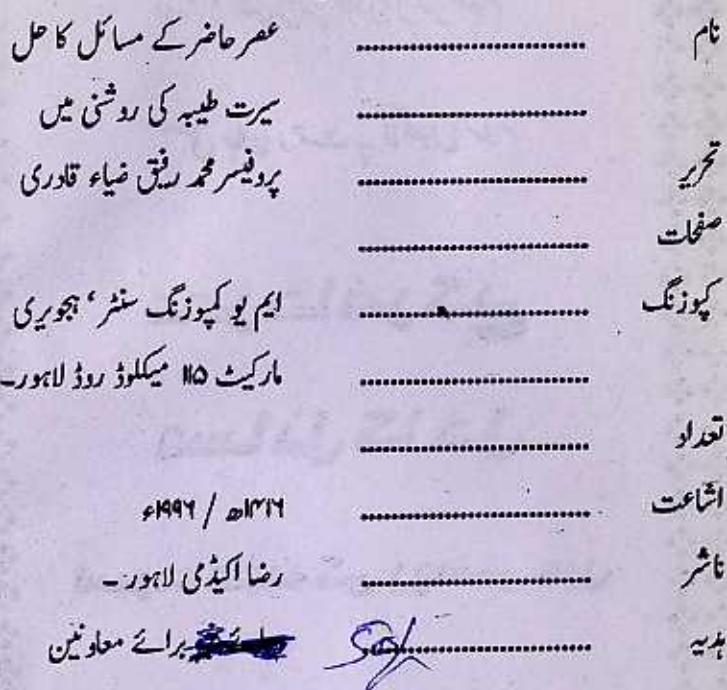 نام ........................................ عصر حاضر کے مسائل کا حل
........................................ سیرت طیبہ کی روشنی میں
تحریر ........................................ پروفیسر محمد رفیق ضیاء قادری
صفحات ........................................
کپوزنگ ........................................ ایم یو کمپوزنگ سنٹر ‘ ہجویری
........................................ مارکیٹ ۱۱۵ میکلوڈ روڈ لاہور۔
تعداد ........................................
اشاعت ........................................ ۱۴۱۶ھ / ۱۹۹۶ء
ناشر ........................................ رضا اکیڈمی لاہور ۔
ہدیہ ........................................ برائے معاونین